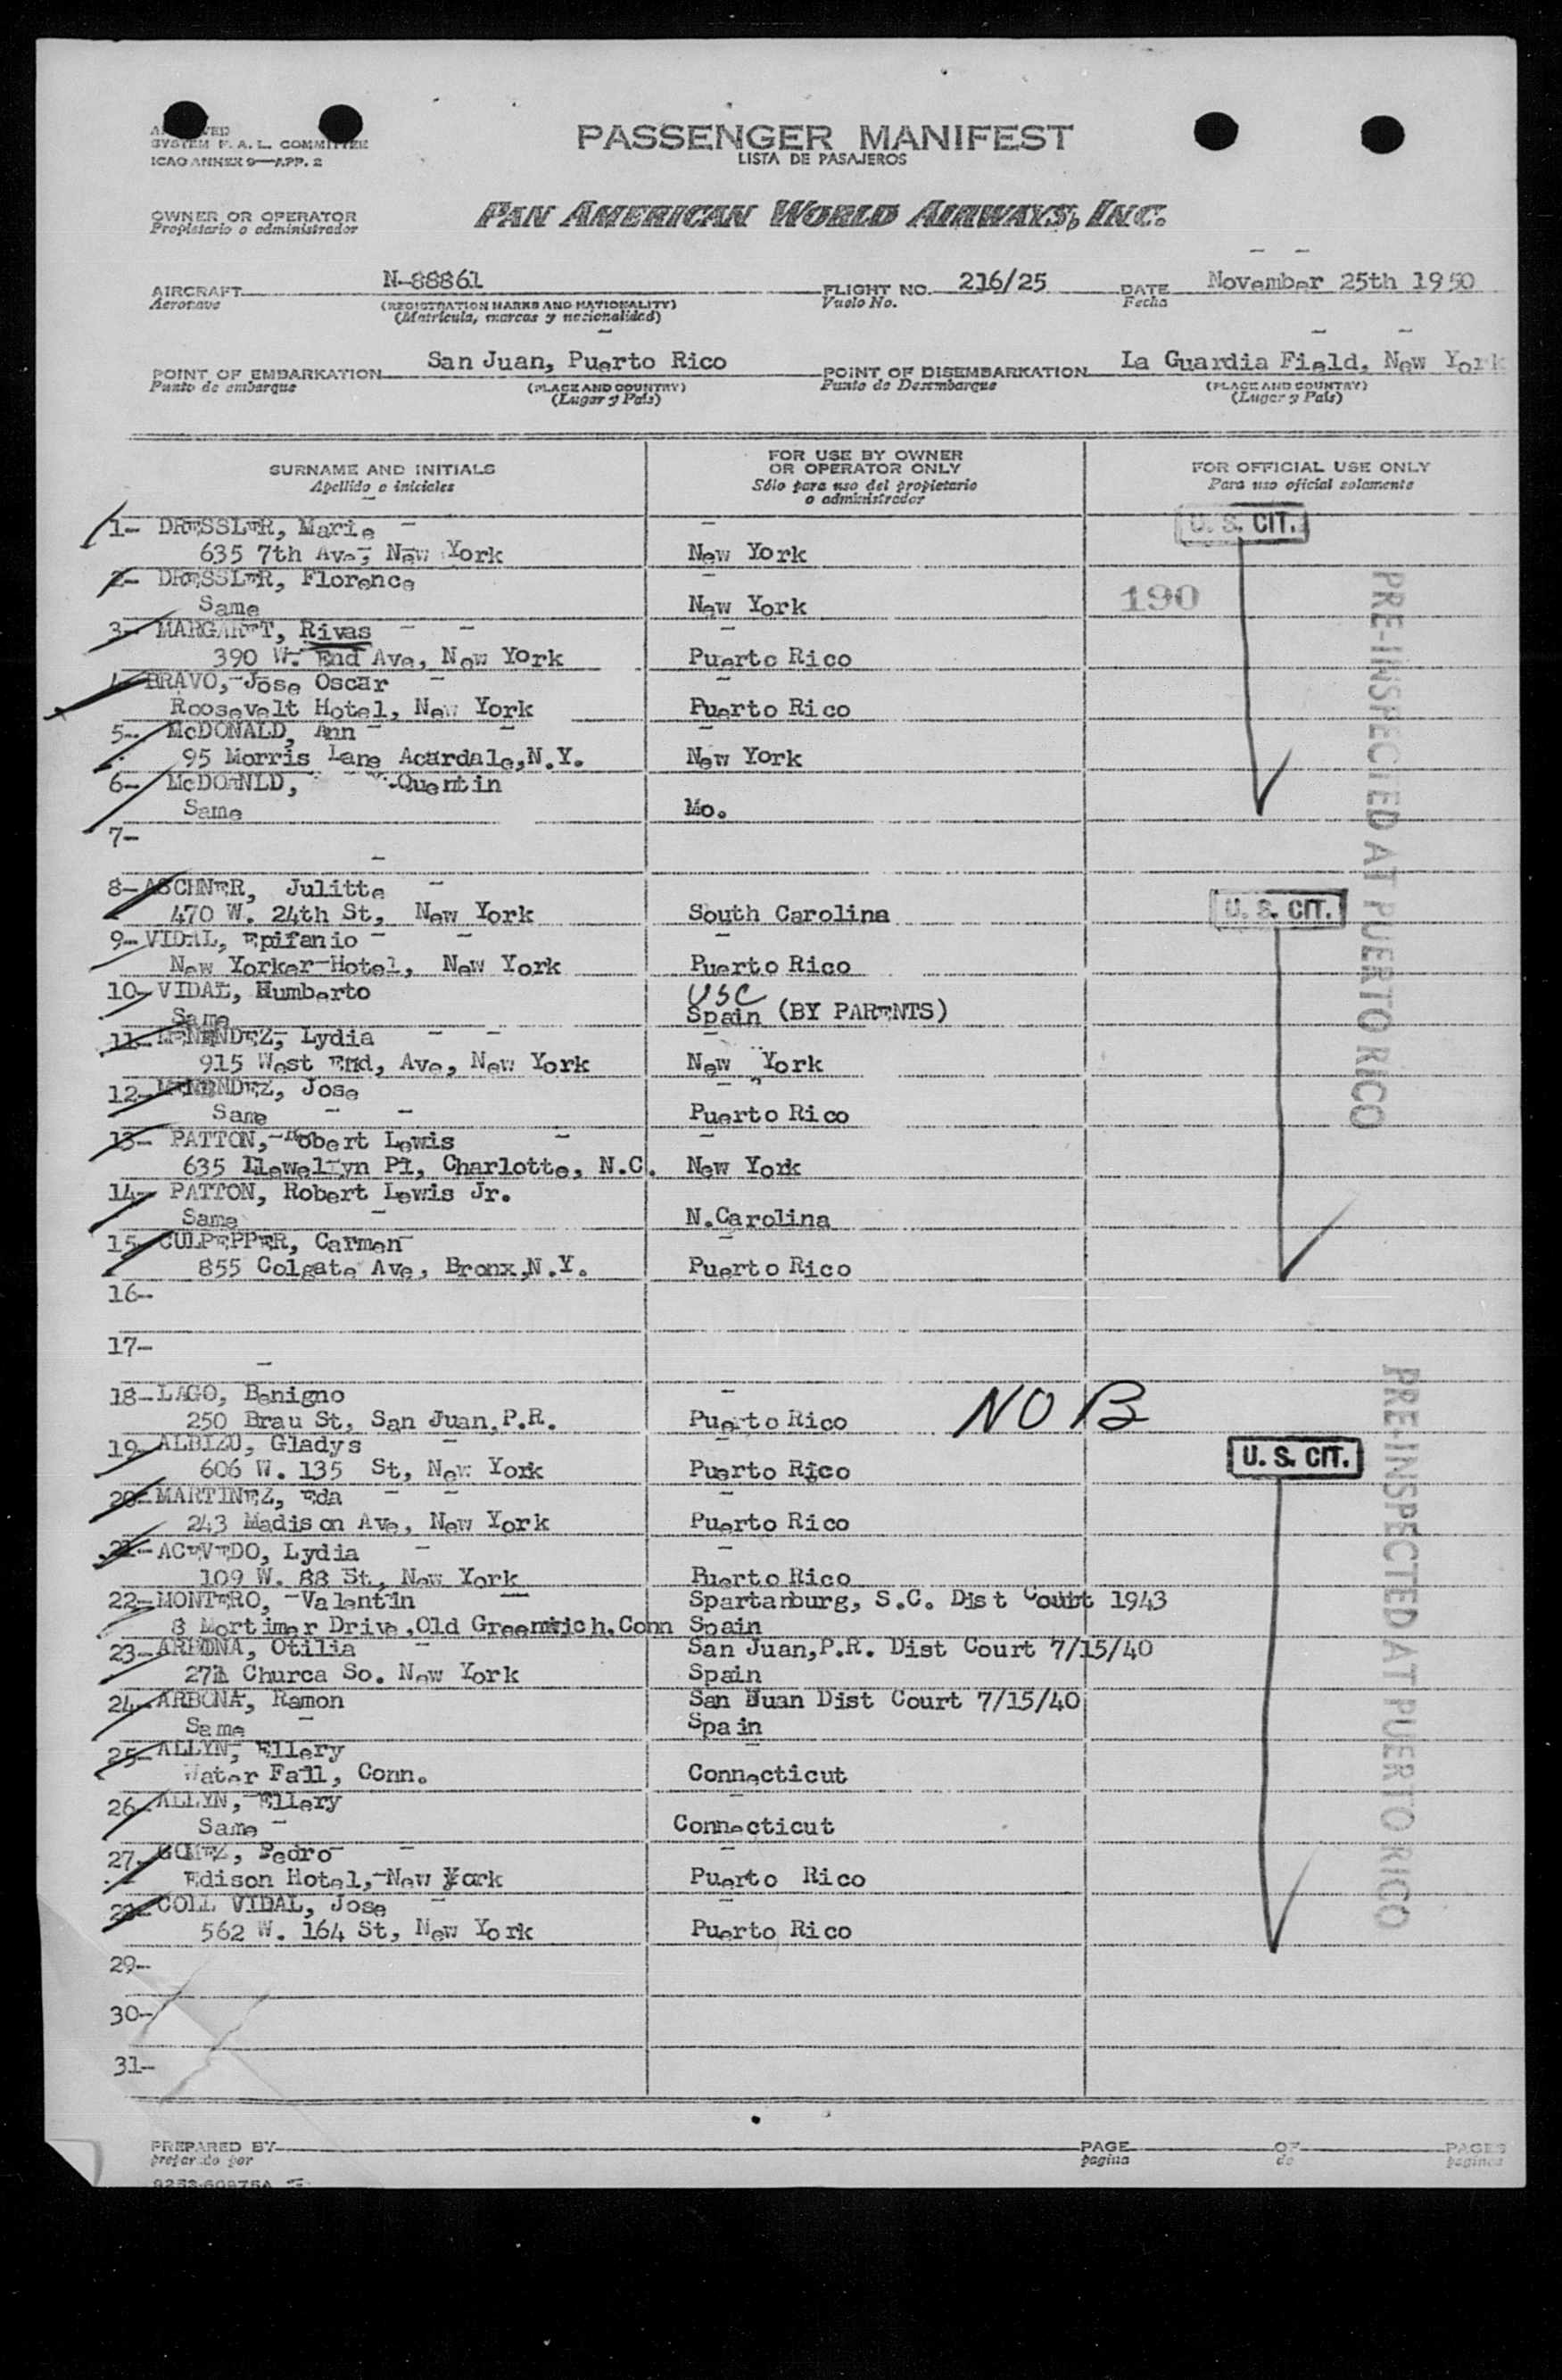 PASSENGER MANIFEST
LISTA DE PASAJEROS
SYSTEM F. A. L. COMMITTEE
ICAO ANNEX 9—APP. 2
OWNER OR OPERATOR
Propietario o administrador
PAN AMERICAN WORLD AIRWAYS, INC.
AIRCRAFT N-88861 FLIGHT NO. 216/25 DATE November 25th 1950
Aeronave (REGISTRATION MARKS AND NATIONALITY) Vuelo No. Fecha
(Matricula, marcas y nacionalidad)
POINT OF EMBARKATION San Juan, Puerto Rico POINT OF DISEMBARKATION La Guardia Field, New York
Punto de embarque (PLACE AND COUNTRY) Punto de Desembarque (PLACE AND COUNTRY)
(Lugar y Pais) (Lugar y Pais)
SURNAME AND INITIALS
Apellido e iniciales
FOR USE BY OWNER
OR OPERATOR ONLY
Sólo para uso del propietario
o administrador
FOR OFFICIAL USE ONLY
Para uso oficial solamente
1- DRESSLER, Marie U. S. CIT.
635 7th Ave, New York New York
2- DRESSLER, Florence
Same New York 190
3- MARGARET, Rivas
390 W. End Ave, New York Puerto Rico
BRAVO, Jose Oscar
Roosevelt Hotel, New York Puerto Rico
5- McDONALD, Ann
95 Morris Lane Acardale, N.Y. New York
6- McDONNLD, Quentin
Same Mo.
7-
8- ASCHNER, Julitte
470 W. 24th St, New York South Carolina U. S. CIT.
9- VIDAL, Epifanio
New Yorker-Hotel, New York Puerto Rico
10- VIDAL, Humberto USC
Same Spain (BY PARENTS)
11- MENENDEZ, Lydia
915 West End, Ave, New York New York
12- MENENDEZ, Jose
Same Puerto Rico
13- PATTON, Robert Lewis
635 Llewellyn Pl, Charlotte, N.C. New York
14- PATTON, Robert Lewis Jr.
Same N.Carolina
15- CULPEPPER, Carmen
855 Colgate Ave, Bronx, N.Y. Puerto Rico
16-
17-
18- LAGO, Benigno
250 Brau St, San Juan, P.R. Puerto Rico NO B
19- ALBIZU, Gladys U. S. CIT.
606 W. 135 St, New York Puerto Rico
20- MARTINEZ, Eda
243 Madison Ave, New York Puerto Rico
21- ACEVEDO, Lydia
109 W. 88 St, New York Puerto Rico
22- MONTERO, Valentin Spartanburg, S.C. Dist Court 1943
8 Mortimer Drive, Old Greenwich, Conn Spain
23- ARBONA, Otilia San Juan, P.R. Dist Court 7/15/40
Churca So. New York Spain
24- ARBONA, Ramon San Juan Dist Court 7/15/40
Same Spain
25- ALLYN, Ellery
Water Fall, Conn. Connecticut
26- ALLYN, Ellery
Same Connecticut
27- GOMEZ, Pedro
Edison Hotel, New York Puerto Rico
28- COLL VIDAL, Jose
562 W. 164 St, New York Puerto Rico
29-
30-
31-
PRE-INSPECTED AT PUERTO RICO
PRE-INSPECTED AT PUERTO RICO
PREPARED BY PAGE OF PAGES
preparado por pagina de paginas